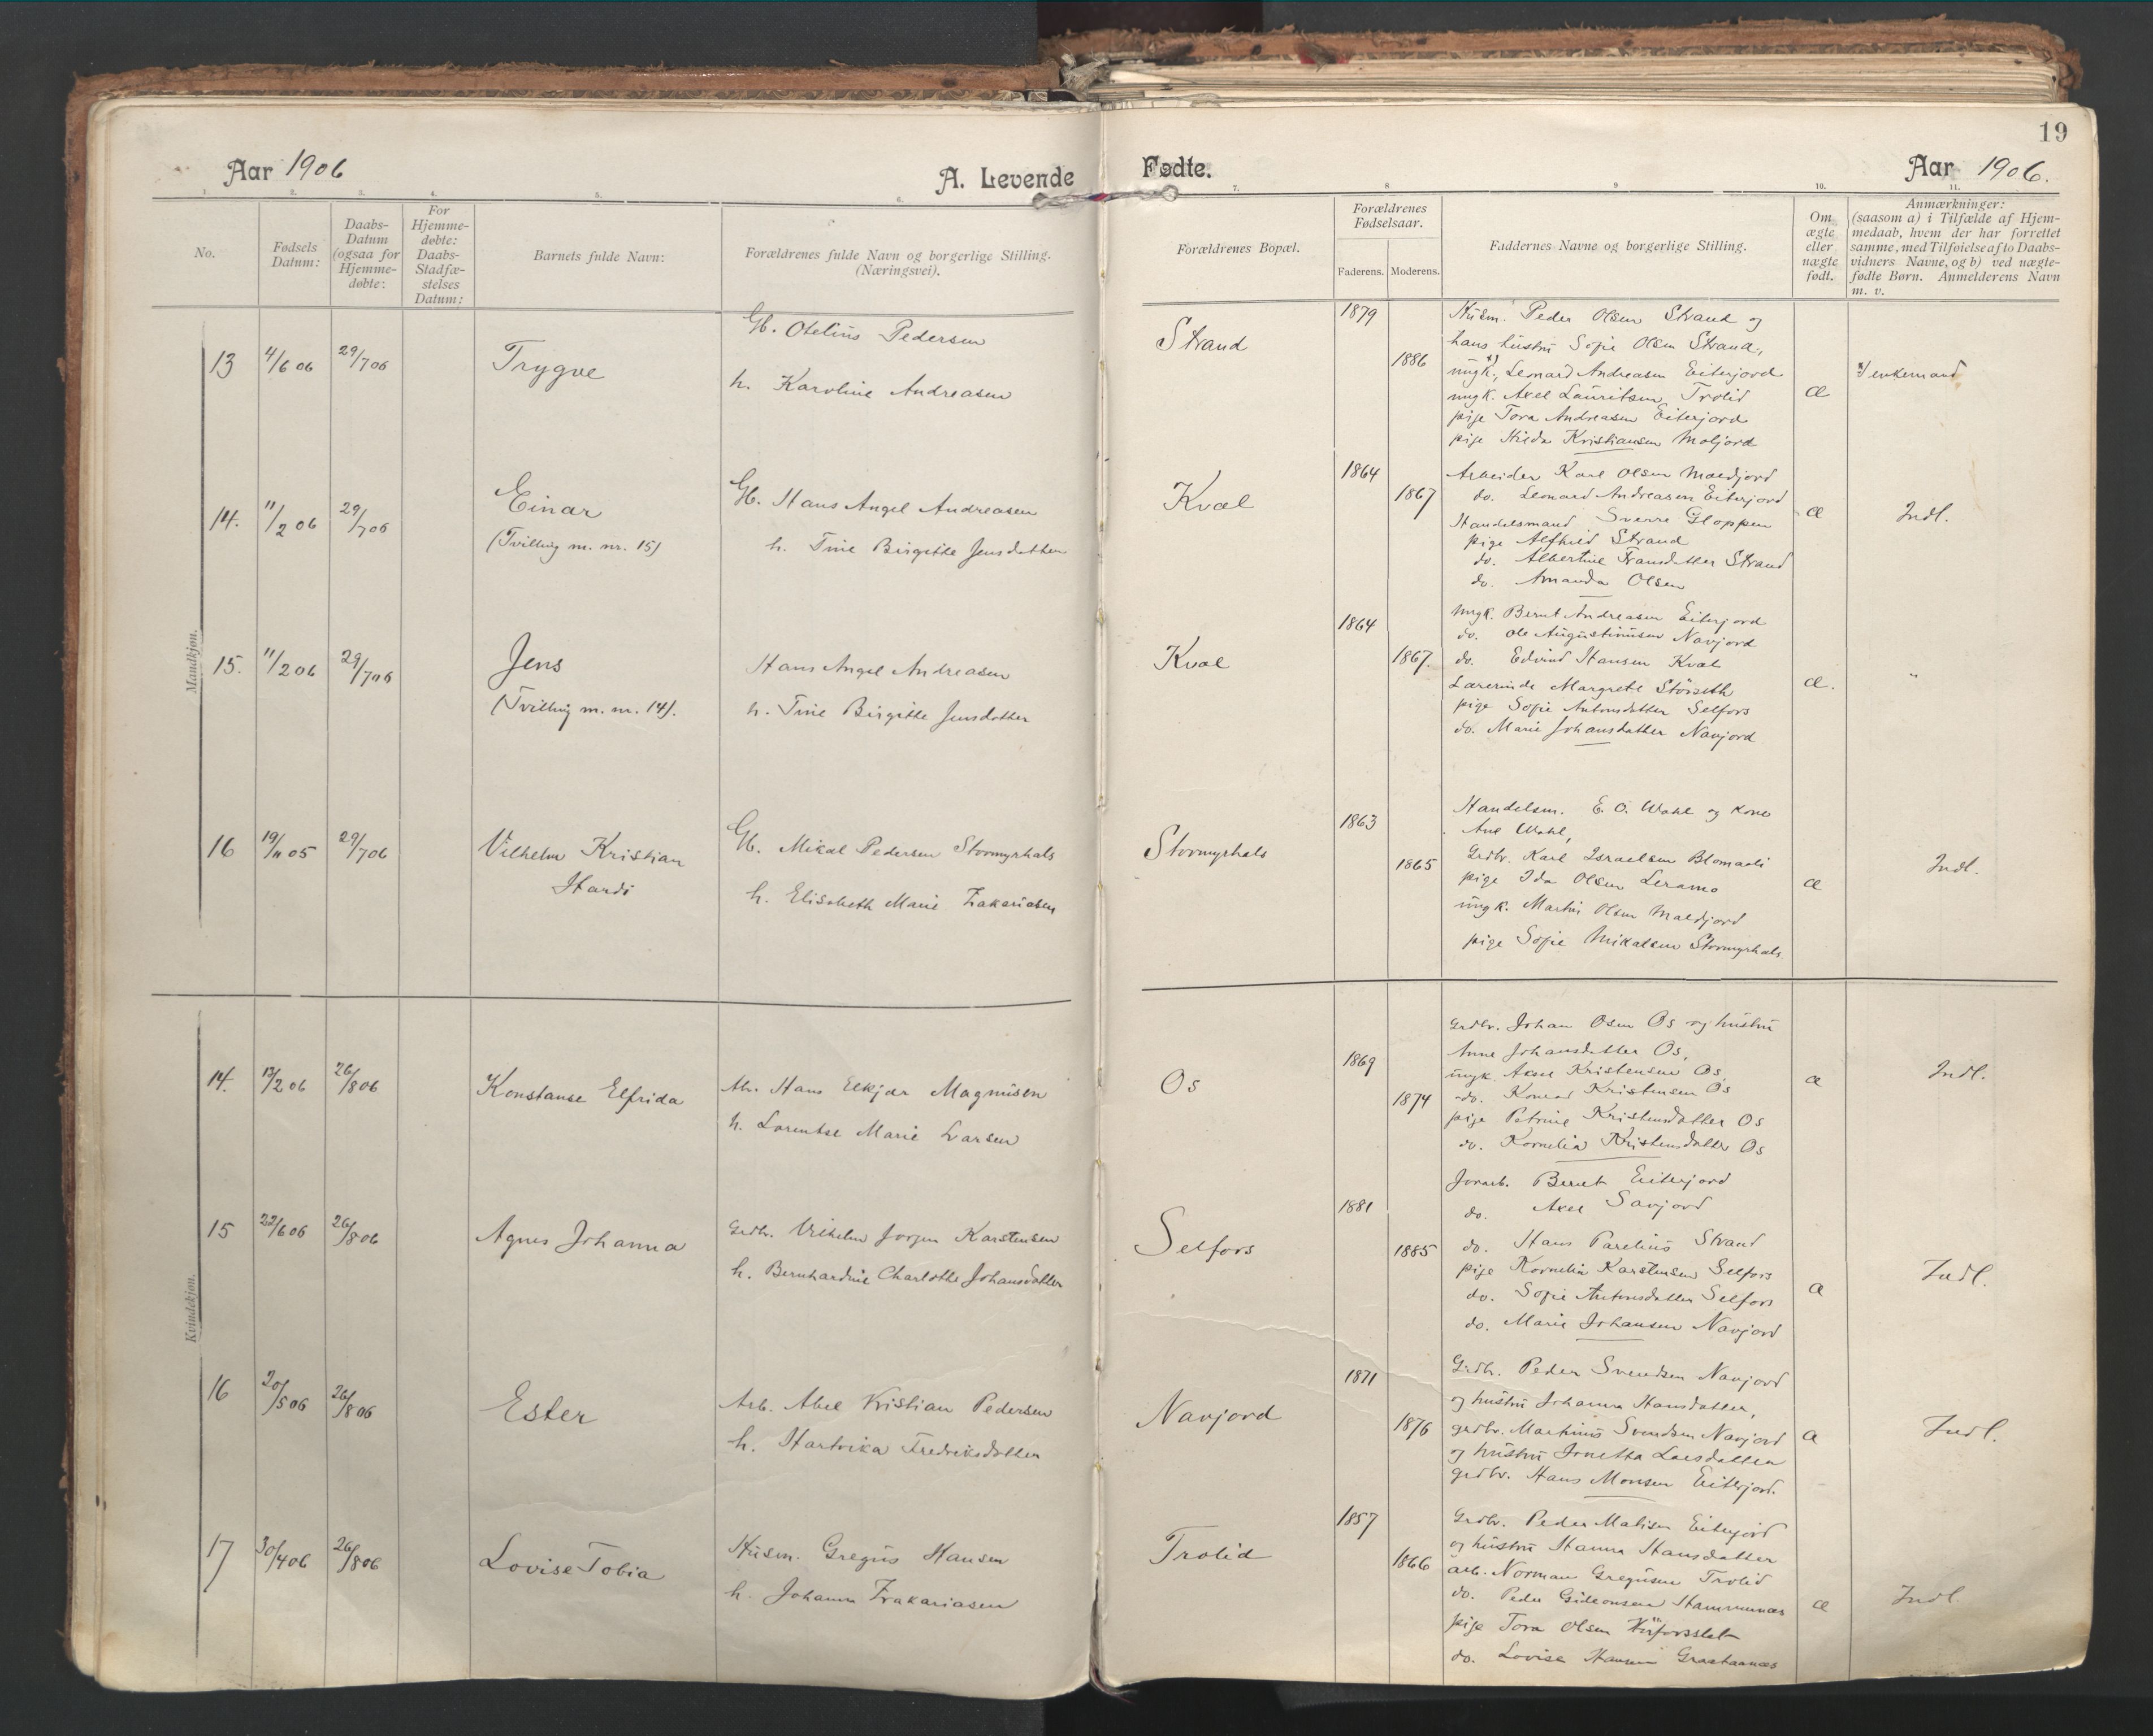 19
Aar 1906
A. Levende
Fødte.
Aar 1906.
1. 2. 3. 4. 5. 6. 7. 8 9 10. 11.
No.
Fødsels Datum:
Daabs-Datum (ogsaa for Hjemmedøbte:
For Hjemmedøbte: Daabs-Stadfæstelses Datum:
Barnets fulde Navn:
Forældrenes fulde Navn og borgerlige Stilling. (Næringsvei).
Forældrenes Bopæl.
Forældrenes Fødselsaar.
Faderens. Moderens.
Faddernes Navne og borgerlige Stilling.
Om ægte eller uægte født.
Anmærkninger: (saasom a) i Tilfælde af Hjemmedaab, hvem der har forrettet samme, med Tilføielse af to Daabsvidners Navne, og b) ved uægtefødte Børn. Anmelderens Navn m. v.
Mandkjøn.
13 4/6 06 29/7 06
Trygve
Gb. Otelius Pedersen
h. Karoline Andreasen
Strand
1879
1886
Husm. Peder Olsen Strand og
hans hustru Sofie Olsen Strand,
ungk. x) Leonard Andreasen Eiterjord
ungk. Axel Lauritsen Trolid
pige Tora Andreasen Eiterjord
pige Hilda Kristiansen Moljord
æ
x) enkemand
14. 11/2 06 29/7 06
Einar
(Tvilling m. nr. 15)
Gb. Hans Angel Andreasen
h. Tine Birgitte Jensdatter
Kvæl
1864
1867
Arbeider Karl Olsen Maldjord
do. Leonard Andreasen Eiterjord
Handelsmand Sverre Gloppen
pige Alfhild Strand
do. Albertine Fransdatter Strand
do. Amanda Olsen
æ
Indl.
15. 11/2 06 29/7 06
Jens
(Tvilling m. nr. 14).
Hans Angel Andreasen
h. Tine Birgitte Jensdatter
Kvæl
1864
1867.
ungk. Bernt Andreasen Eiterjord
do. Ole Augustinusen Navjord
do. Edvind Hansen Kvæl
Lærerinde Margrete Störseth
pige Sofie Antonsdatter Selfors
do. Marie Johansdatter Navjord
æ.
"
16 19/11 05 29/7 06
Vilhelm Kristian
Hardi
Gb. Mikal Pedersen Stormyrhals
h. Elisabeth Marie Zakariasen
Stormyrhals
1863
1865
Handelsm. E. O. Wahl og kone
Ane Wahl,
Grdbr. Karl Israelsen Blomaali
pige Ida Olsen Leramo
ungk. Martin Olsen Maldjord
pige Sofie Mikalsen Stormyrhals
æ
Indl.
Kvindekjøn.
14. 13/2 06 26/8 06
Konstanse Elfrida
Arb. Hans Elkjær Magnusen
h. Lorentse Marie Larsen
Os
1869
1874
Grdbr. Johan Osen Os og hustru
Anne Johansdatter Os,
ungk. Aksel Kristensen Os
do. Konrad Kristensen Os
pige Petrine Kristensdatter Os
do. Kornelia Kristensdatter Os
æ
Indl.
15 22/6 06 26/8 06
Agnes Johanna
Grdbr. Vilhelm Jorgen Karstensen
h. Bernhardine Charlotte Johansdatter
Selfors
1881
1885
Jernarb. Bernt Eiterjord
do. Axel Savjord
do. Hans Parelius Strand
pige Kornelia Karstensen Selfors
do. Sofie Antonsdatter Selfors
do. Marie Johansen Navjord
æ
Indl.
16 20/5 06 26/8 06
Ester
Arb. Abel Kristian Pedersen
h. Hartvika Fredriksdatter
Navjord
1871
1876
Grdbr. Peder Svendsen Navjord
og hustru Johanna Hansdatter,
grdbr. Martinus Svendsen Navjord
og hustru Jonetta Larsdatter
grdbr. Hans Monsen Eiterjord.
æ
Indl.
17 30/4 06 26/8 06
Lovise Tobia
Husm. Gregus Hansen
h. Johanna Zakariasen
Trolid
1857
1866
Grdbr. Peder Matisen Eiterjord
og hustru Hanna Hansdatter
arb. Norman Gregusen Trolid
do. Peder Gideonsen Hammernæs
pige Tora Olsen
do. Lovise Hansen Graataanæs
æ
Indl.